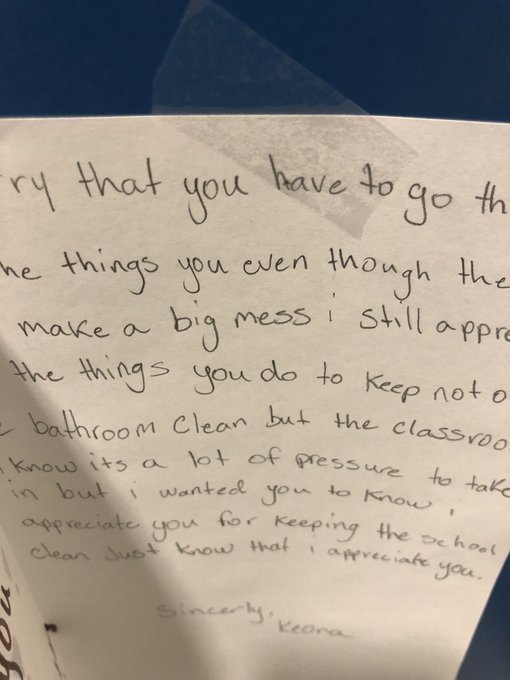 ry that you have to go th
he things you even though the
make a big mess i still appre
the things you do to keep not o
bathroom clean but the classroo
know its a lot of pressure to take
in but i wanted you to know i
appreciate you for keeping the school
clean Just know that i appreciate you.
Sincerly,
Keona
you